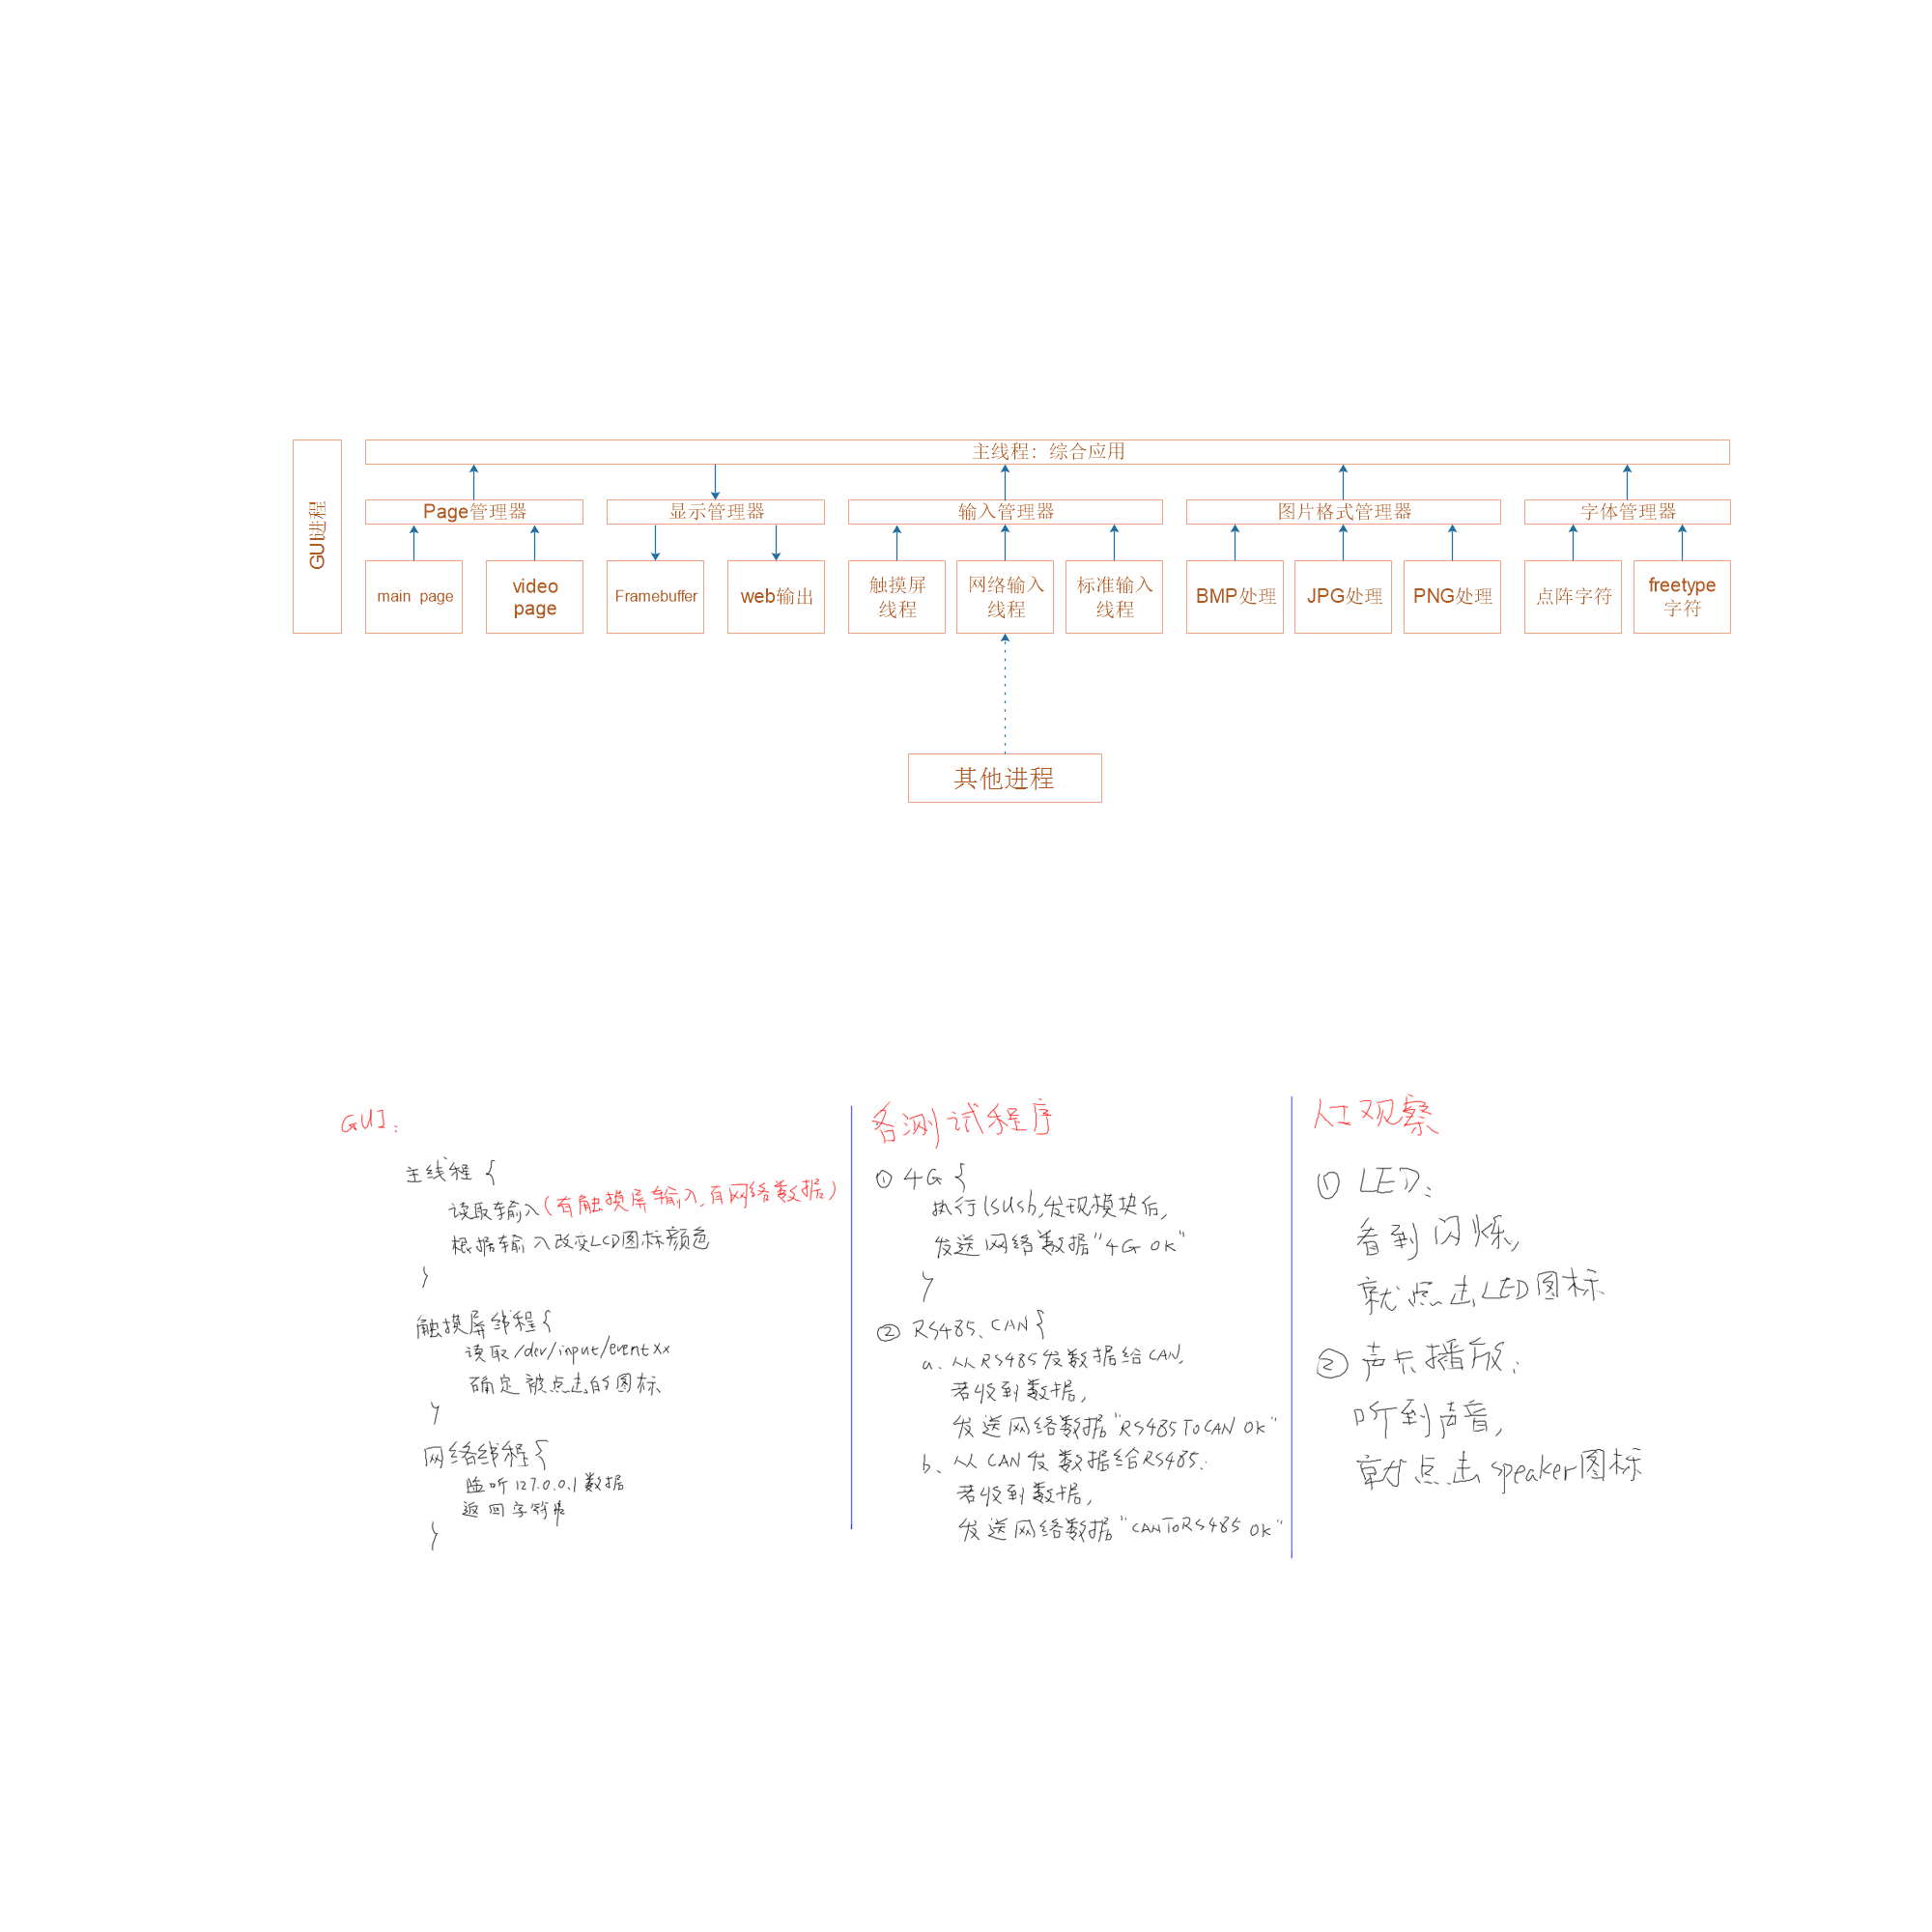 GUI进程
主线程：综合应用
Page管理器
显示管理器
输入管理器
图片格式管理器
字体管理器
main page
video
page
Framebuffer
web输出
触摸屏
线程
网络输入
线程
标准输入
线程
BMP处理
JPG处理
PNG处理
点阵字符
freetype
字符
其他进程
GUI：
主线程 {
读取输入(有触摸屏输入,有网络数据)
根据输入改变LCD图标颜色
}
触摸屏线程{
读取/dev/input/eventxx
确定被点击的图标
}
网络线程{
监听127.0.0.1数据
返回字符串
}
各测试程序
① 4G {
执行lsusb,发现模块后,
发送网络数据"4G ok"
}
② RS485、CAN {
a. 从RS485发数据给CAN,
若收到数据,
发送网络数据"RS485ToCAN ok"
b、从CAN发数据给RS485.
若收到数据,
发送网络数据"CANToRS485 ok"
人工观察
① LED：
看到闪烁,
就点击LED图标
② 声卡播放：
听到声音,
就点击speaker图标